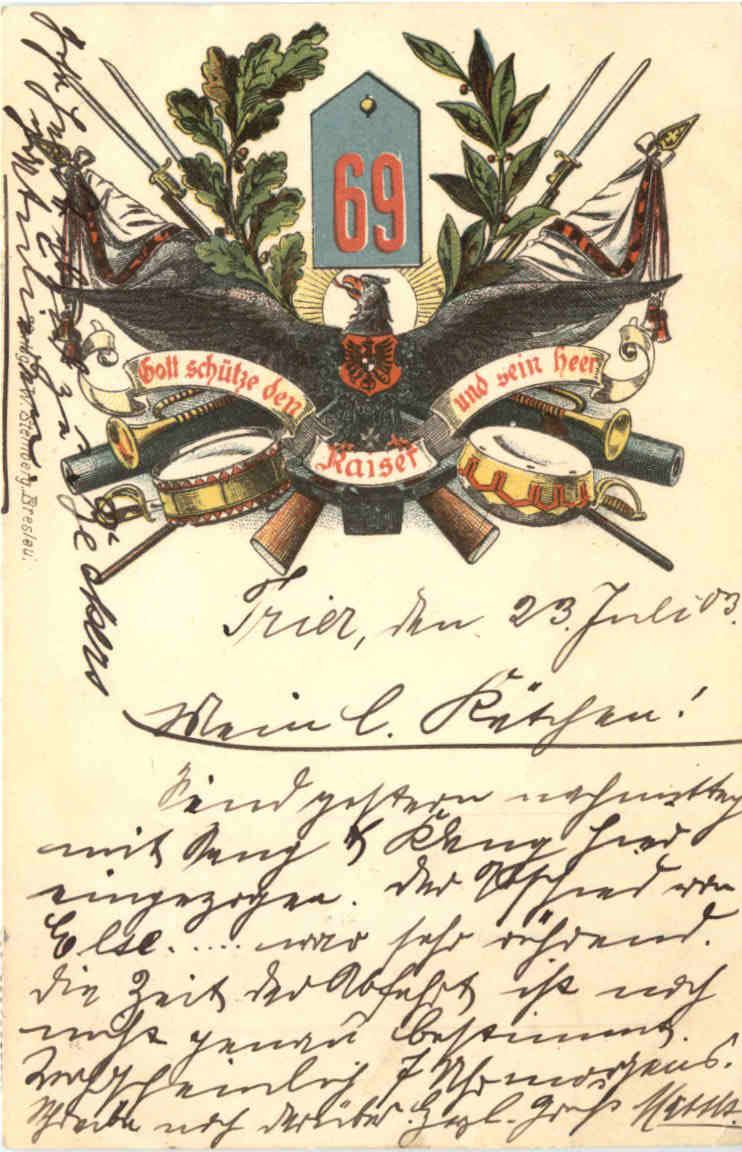 69
Gott schütze den
Kaiser
und sein Heer
W. Steinberg, Breslau.
Trier, den 23. Juli 03.
Mein l. Kätchen!
Sind gestern nachmittag
mit Sang & Klang hier
eingezogen. Der Abschied von
Else..... war sehr rührend.
Die Zeit der Abfahrt ist noch
nicht genau bestimmt.
Wahrscheinlich 7 Uhr morgens.
Schreibe noch darüber. Herzl. Gruß